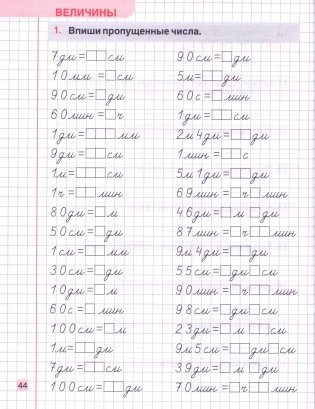 ВЕЛИЧИНЫ
1. Впиши пропущенные числа.
7дм=□□см
10мм=□см
90см=□дм
60мин=□ч
1дм=□□□мм
9дм=□□см
1м=□□□см
1ч=□□мин
80дм=□м
50см=□дм
1см=□□мм
30см=□дм
10дм=□м
60с=□мин
100см=□м
1м=□□дм
7дм=□□см
100см=□□дм
90см=□дм
5м=□□дм
60с=□мин
1дм=□□см
2м4дм=□□дм
1мин=□□с
5м1дм=□□дм
69мин=□ч□мин
46дм=□м□дм
87мин=□ч□□мин
9м4дм=□□дм
55см=□дм□см
90мин=□ч□□мин
98см=□дм□см
23дм=□м□□см
9м5см=□□дм□см
39дм=□м□дм
70мин=□ч□□мин
44